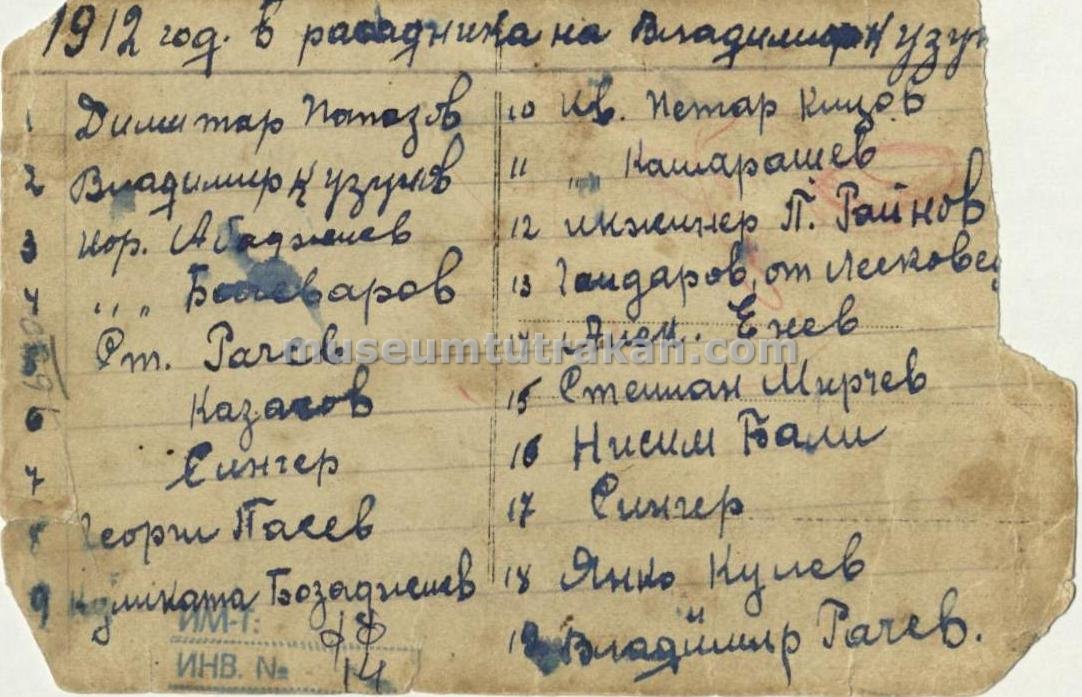 1912 год. в расадника на Владимир Кузун
1 Димитар Папазов
2 Владимир Кузунов
3 пор. Абаджиев
4 " " Болеваров
5 Ст. Рачев
6 Казаков
7 Сингер
8 Георги Пасев
9 Бозаджиев
10 Ив. Петар Кицов
11 " Катарашев
12 инженер П. Райнов
13 Гайдаров, от Лесковец
14 Алек. Енев
15 Стеман Мирчев
16 Нисим Бали
17 Сингер
18 Янко Кулев
19 Владимир Рачев.
museumtutrakan.com
ИМ-Т:
ИНВ. №